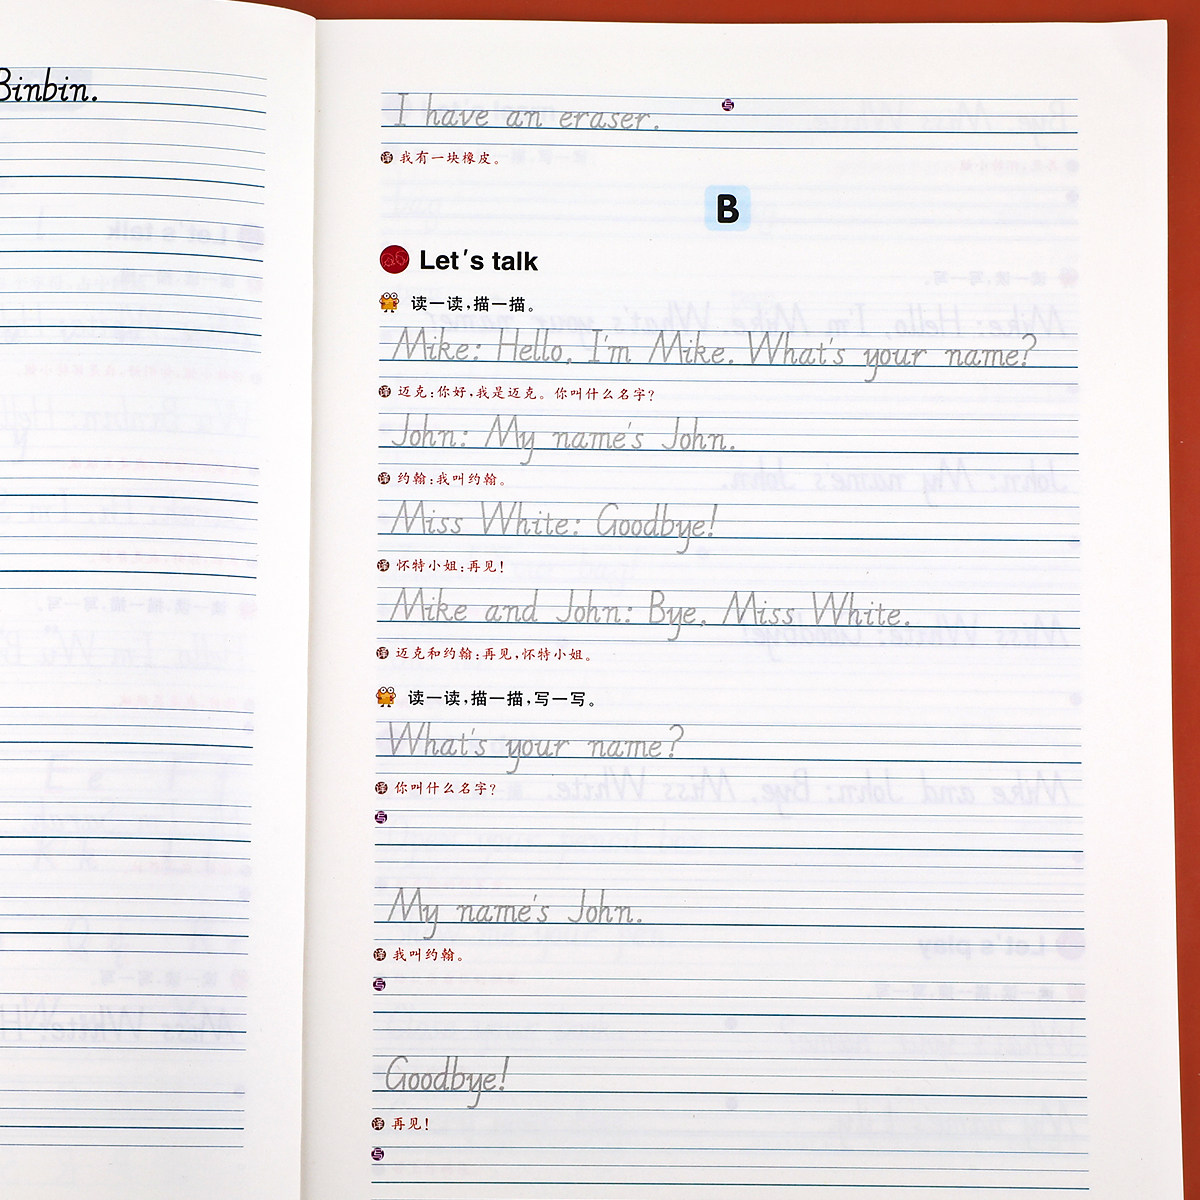 Binbin.
I have an eraser.
写
译 我有一块橡皮。
B
Let's talk
读一读,描一描。
Mike: Hello, I'm Mike. What's your name?
译 迈克:你好,我是迈克。你叫什么名字?
John: My name's John.
译 约翰:我叫约翰。
Miss White: Goodbye!
译 怀特小姐:再见!
Mike and John: Bye, Miss White.
译 迈克和约翰:再见,怀特小姐。
读一读,描一描,写一写。
What's your name?
译 你叫什么名字?
写
My name's John.
译 我叫约翰。
写
Goodbye!
译 再见!
写